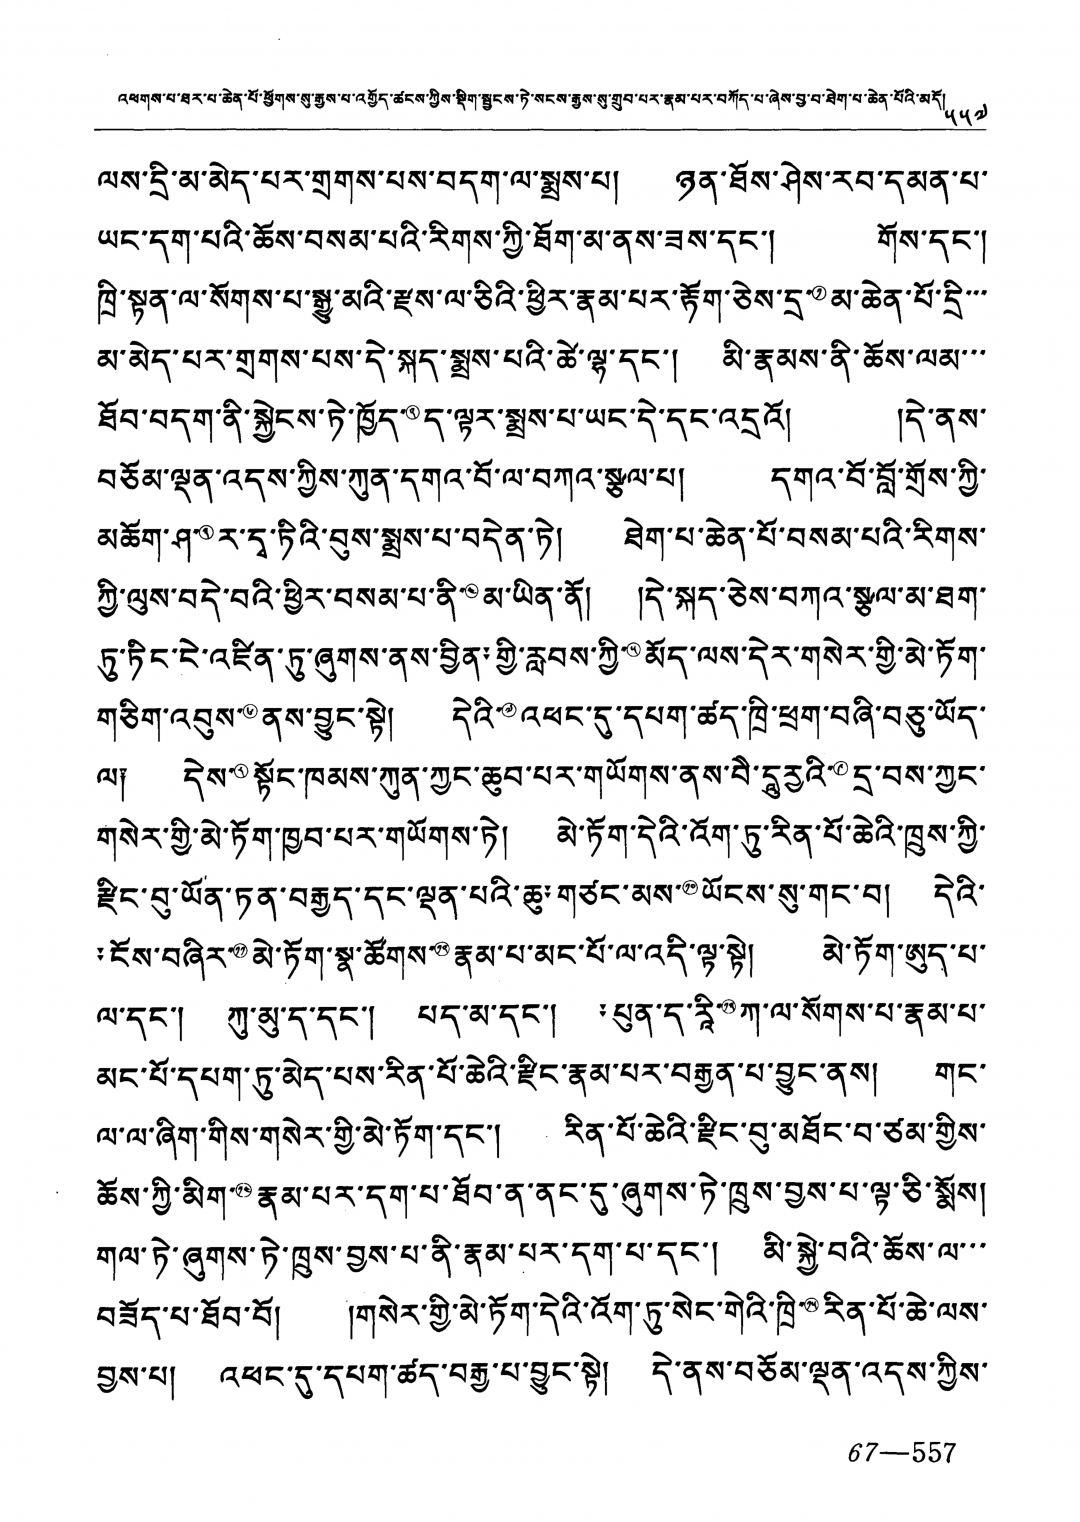 འཕགས་པ་ཐར་པ་ཆེན་པོ་ཕྱོགས་སུ་རྒྱས་པ་འགྱོད་ཚངས་ཀྱིས་སྡིག་སྦྱངས་ཏེ་སངས་རྒྱས་སུ་གྲུབ་པར་རྣམ་པར་བཀོད་པ་ཞེས་བྱ་བ་ཐེག་པ་ཆེན་པོའི་མདོ། ༥༥༧
ལས་དྲི་མ་མེད་པར་གྲགས་པས་བདག་ལ་སྨྲས་པ། ཉན་ཐོས་ཤེས་རབ་དམན་པ་
ཡང་དག་པའི་ཆོས་བསམ་པའི་རིགས་ཀྱི་ཐོག་མ་ནས་ཟས་དང་། གོས་དང་།
ཁྲི་སྟན་ལ་སོགས་པ་སྒྱུ་མའི་རྫས་ལ་ཅིའི་ཕྱིར་རྣམ་པར་རྟོག་ཅེས་དྲ་①མ་ཆེན་པོ་དྲི་…
མ་མེད་པར་གྲགས་པས་དེ་སྐད་སྨྲས་པའི་ཚེ་ལྷ་དང་། མི་རྣམས་ནི་ཆོས་ལམ་…
ཐོབ་བདག་ནི་སྐྱེངས་ཏེ་ཁྱོད་②ད་ལྟར་སྨྲས་པ་ཡང་དེ་དང་འདྲའོ། །དེ་ནས་
བཅོམ་ལྡན་འདས་ཀྱིས་ཀུན་དགའ་བོ་ལ་བཀའ་སྩལ་པ། དགའ་བོ་བློ་གྲོས་ཀྱི་
མཆོག་ཤ་③ར་དྭ་ཏིའི་བུས་སྨྲས་པ་བདེན་ཏེ། ཐེག་པ་ཆེན་པོ་བསམ་པའི་རིགས་
ཀྱི་ལུས་བདེ་བའི་ཕྱིར་བསམ་པ་ནི་④མ་ཡིན་ནོ། །དེ་སྐད་ཅེས་བཀའ་སྩལ་མ་ཐག་
ཏུ་ཏིང་ངེ་འཛིན་ཏུ་ཞུགས་ནས་བྱིན་༔གྱི་རླབས་ཀྱི་⑤མོད་ལས་དེར་གསེར་གྱི་མེ་ཏོག་
གཅིག་འབུས་⑥ནས་བྱུང་སྟེ། དེའི་⑦འཕང་དུ་དཔག་ཚད་ཁྲི་ཕྲག་བཞི་བཅུ་ཡོད་
ལ༑ དེས་⑧སྟོང་ཁམས་ཀུན་ཀྱང་ཆུབ་པར་གཡོགས་ནས་བཻ་ཌཱུརྱའི་⑨དྲ་བས་ཀྱང་
གསེར་གྱི་མེ་ཏོག་ཁྱབ་པར་གཡོགས་ཏེ། མེ་ཏོག་དེའི་འོག་ཏུ་རིན་པོ་ཆེའི་ཁྲུས་ཀྱི་
རྫིང་བུ་ཡོན་ཏན་བརྒྱད་དང་ལྡན་པའི་ཆུ་༔གཙང་མས་⑩ཡོངས་སུ་གང་བ། དེའི་
༔ངོས་བཞིར་⑪མེ་ཏོག་སྣ་ཚོགས་⑫རྣམ་པ་མང་པོ་ལ་འདི་ལྟ་སྟེ། མེ་ཏོག་ཨུད་པ་
ལ་དང་། ཀུ་མུ་ད་དང་། པད་མ་དང་། ༔པུན་ད་རཱི་⑬ཀ་ལ་སོགས་པ་རྣམ་པ་
མང་པོ་དཔག་ཏུ་མེད་པས་རིན་པོ་ཆེའི་རྫིང་རྣམ་པར་བརྒྱན་པ་བྱུང་ནས། གང་
ལ་ལ་ཞིག་གིས་གསེར་གྱི་མེ་ཏོག་དང་། རིན་པོ་ཆེའི་རྫིང་བུ་མཐོང་བ་ཙམ་གྱིས་
ཆོས་ཀྱི་མིག་⑭རྣམ་པར་དག་པ་ཐོབ་ན་ནང་དུ་ཞུགས་ཏེ་ཁྲུས་བྱས་པ་ལྟ་ཅི་སྨོས།
གལ་ཏེ་ཞུགས་ཏེ་ཁྲུས་བྱས་པ་ནི་རྣམ་པར་དག་པ་དང་། མི་སྐྱེ་བའི་ཆོས་ལ་…
བཟོད་པ་ཐོབ་བོ། །གསེར་གྱི་མེ་ཏོག་དེའི་འོག་ཏུ་སེང་གེའི་ཁྲི་⑮རིན་པོ་ཆེ་ལས་
བྱས་པ། འཕང་དུ་དཔག་ཚད་བརྒྱ་པ་བྱུང་སྟེ། དེ་ནས་བཅོམ་ལྡན་འདས་ཀྱིས་
67—557